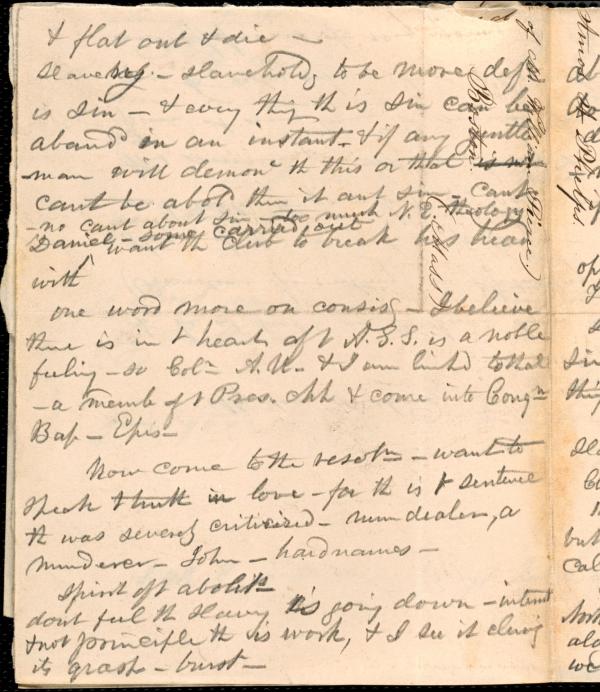 & flat out & die —
Slavehg. — Slaveholdg to be more def
is sin — & every thg th is sin can be
aband in an instant — & if any gentle
-man will demone th this or that is not
cant be abold then it ant sin — cant
- no cant about sin — too much N.E. theology
Daniel — some carried out
want th club to break his head
with
one word more on consisg — I believe
there is in t heart of t A.S.S. is a noble
feeling — so Coln A.U. & I am linkd to that
— a memb of t Pres. chh & come into Congn
Bap — Epis —
Now come to the resoltn — want to
speak t truth in love — for th is t sentence
th was severely criticised — mendealer, a
murderer — John — hard names —
spirit of t abolits
dont feel th slavery is going down — interest
& not principle th is work, & I see it clinig
its grasp — burst —
of Mr. William Pierce,
Boston.
Mass
Amos A. Phelps.